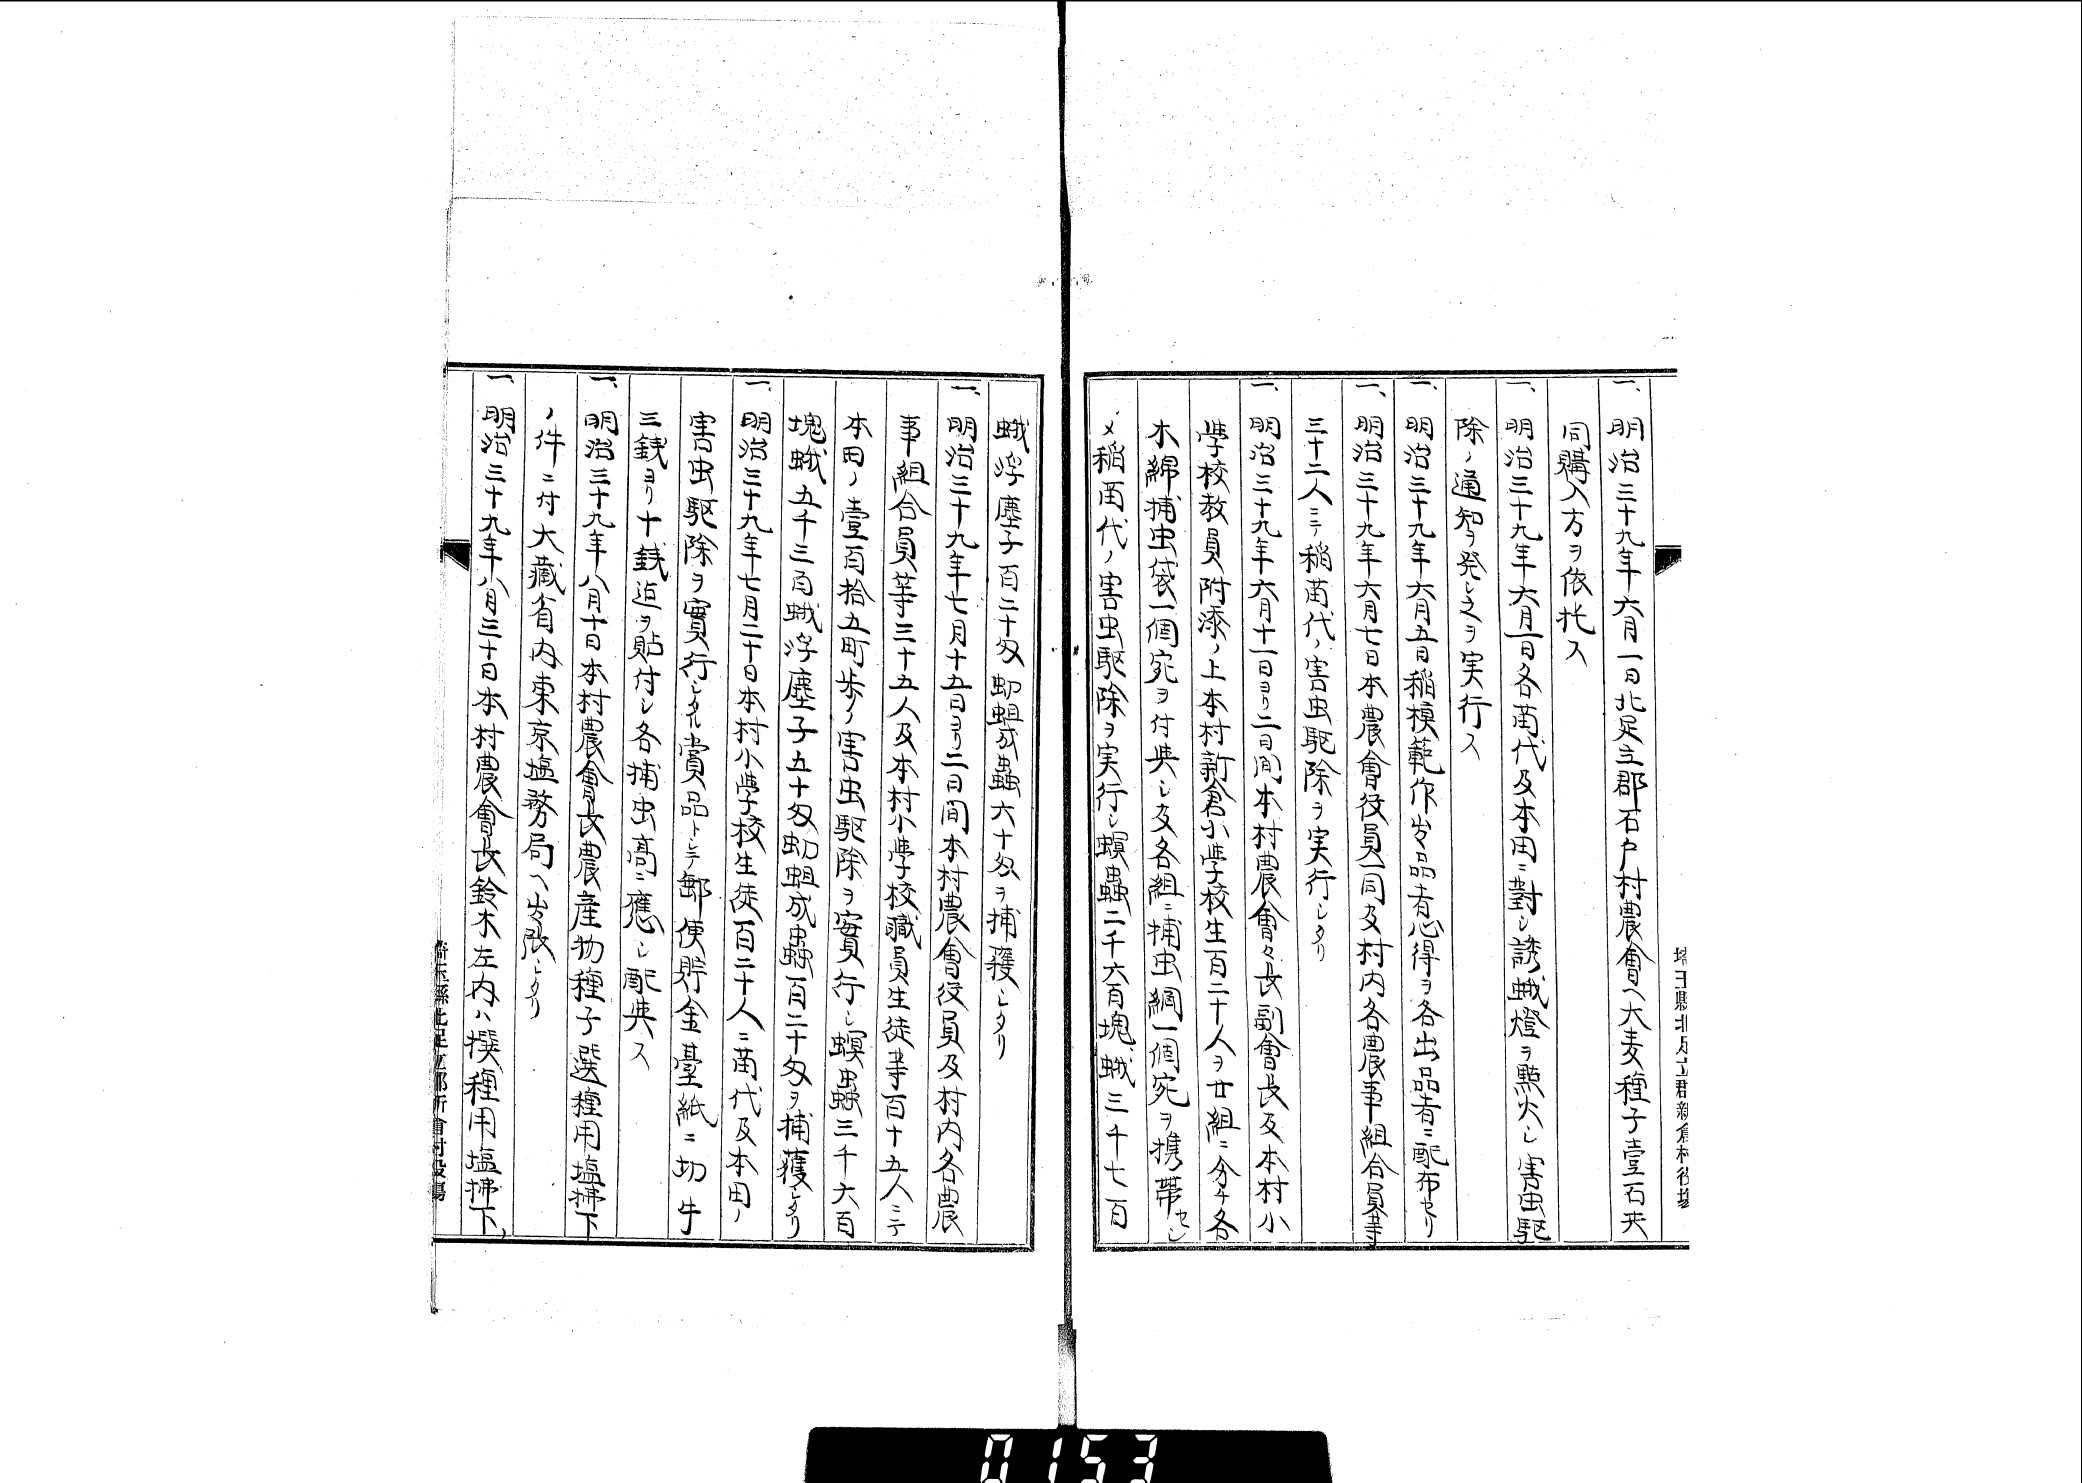 一、明治三十九年六月一日北足立郡石戸村農會ヘ大麦種子壹石共
同購入方ヲ依托ス
一、明治三十九年六月一日各苗代及本田ニ對シ誘蛾燈ヲ點火シ害虫駆
除ノ通知ヲ発シ之ヲ実行ス
一、明治三十九年六月五日稲模範作出品者心得ヲ各出品者ニ配布セリ
一、明治三十九年六月七日本農會役員一同及村内各農事組合員等
三十二人ニテ稲苗代ノ害虫駆除ヲ実行シタリ
一、明治三十九年六月十一日ヨリ二日間本村農會々長副會長及本村小
学校教員附添ノ上本村新倉小学校生百二十人ヲ廿組ニ分チ各
木綿捕虫袋一個宛ヲ付與シ及各組ニ捕虫網一個宛ヲ携帯セシ
メ稲苗代ノ害虫駆除ヲ実行シ螟蟲二千六百塊蛾三千七百
蛾浮塵子百二十匁蚏蛆成蟲六十匁ヲ捕獲シタリ
一、明治三十九年七月十五日ヨリ二日間本村農會役員及村内各農
事組合員等三十五人及本村小学校職員生徒等百十五人ニテ
本田ノ壹百拾五町歩ノ害虫駆除ヲ實行シ螟蟲三千六百
塊蛾五千三百蛾浮塵子五十匁蚏蛆成蟲百二十匁ヲ捕獲シタリ
一、明治三十九年七月二十日本村小学校生徒百二十人ニ苗代及本田ノ
害虫駆除ヲ實行シタル賞品トシテ郵便貯金臺紙ニ切手
三銭ヨリ十銭迄ヲ貼付シ各捕虫高ニ應シ配與ス
一、明治三十九年八月十日本村農會長農産物種子選種用塩拂下
ノ件ニ付大蔵省内東京塩務局ヘ出張シタリ
一、明治三十九年八月三十日本村農會長鈴木左内ハ撰種用塩拂下、
埼玉縣北足立郡新倉村役場
埼玉縣北足立郡新倉村役場
0153